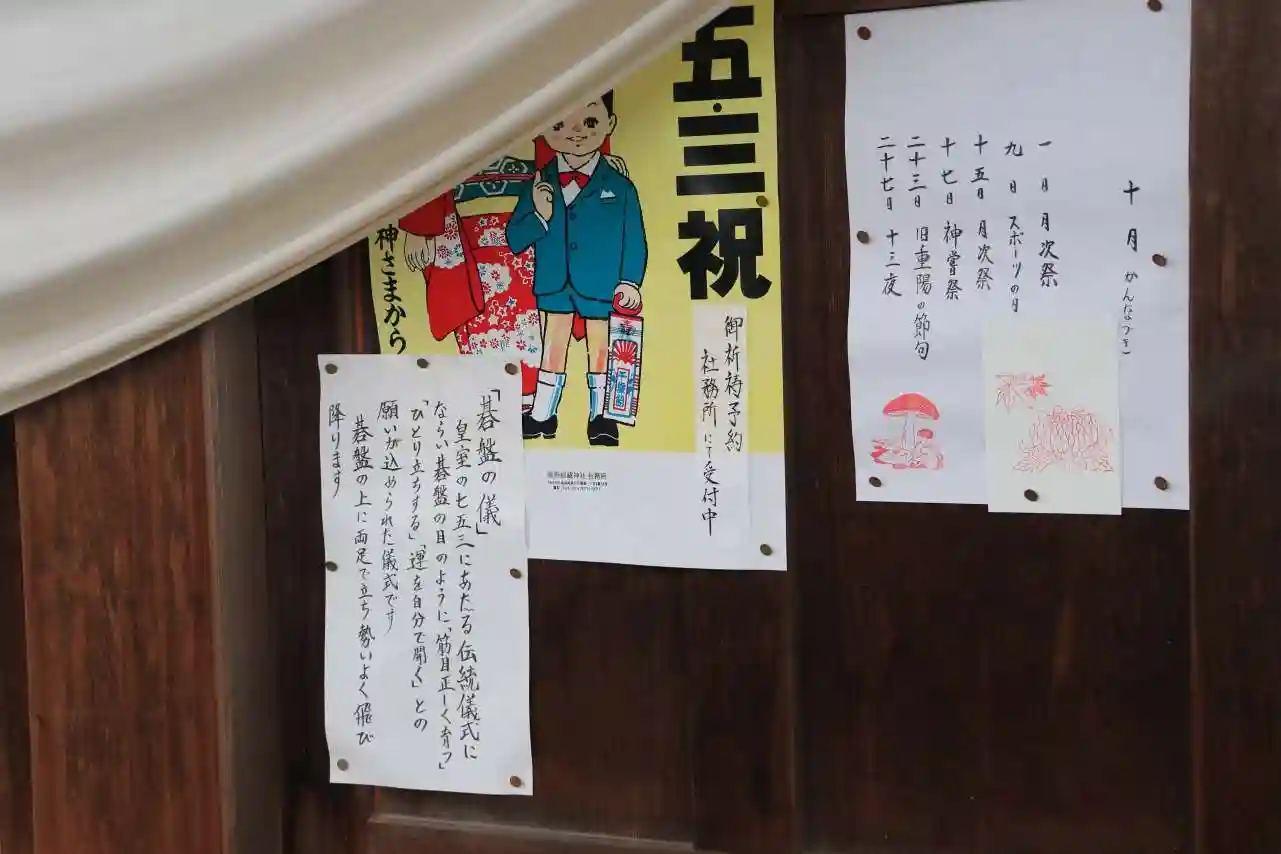 十月 かんなづき
一日 月次祭
九日 スポーツの日
十五日 月次祭
十七日 神嘗祭
二十三日 旧重陽の節句
二十七日 十三夜
五・三祝
御祈祷予約
社務所にて受付中
神さまから
「碁盤の儀」
皇室の七五三にあたる伝統儀式に
ならい碁盤の目のように「筋目正しく育つ」
「ひとり立ちする」「運を自分で開く」との
願いが込められた儀式です
碁盤の上に両足で立ち勢いよく飛び
降ります